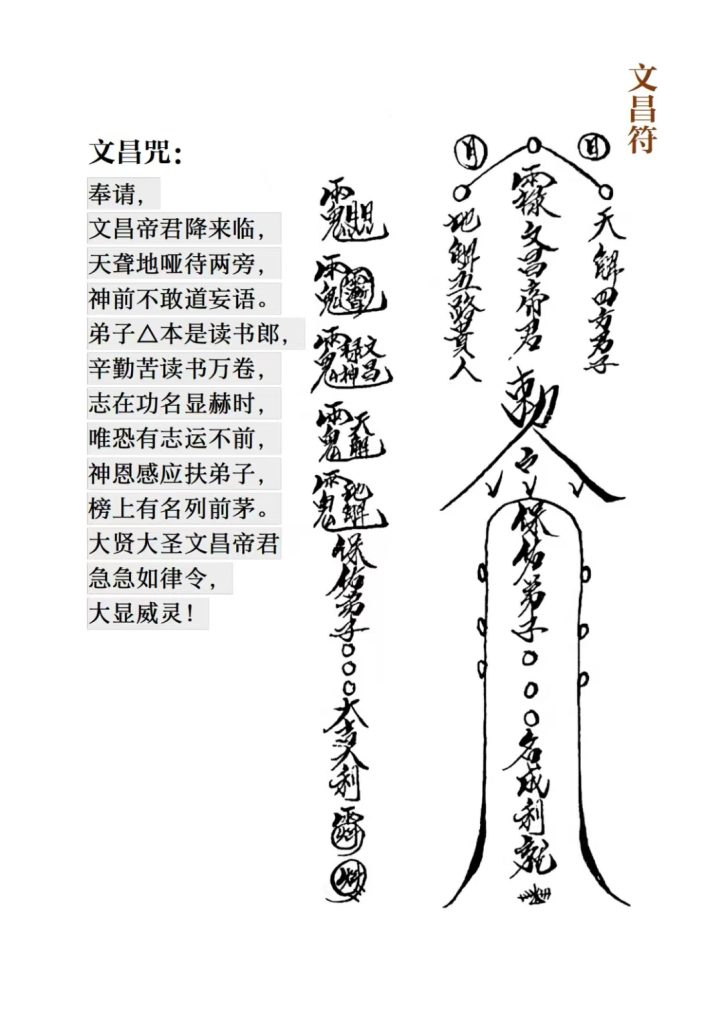 文昌符
文昌咒：
奉请，
文昌帝君降来临，
天聋地哑待两旁，
神前不敢道妄语。
弟子△本是读书郎，
辛勤苦读书万卷，
志在功名显赫时，
唯恐有志运不前，
神恩感应扶弟子，
榜上有名列前茅。
大贤大圣文昌帝君
急急如律令，
大显威灵！
日
月
天解四方君子
文昌帝君
地解五路貴人
勅
保佑弟子
名成利就
文昌
天解
地解
保佑弟子
大吉大利